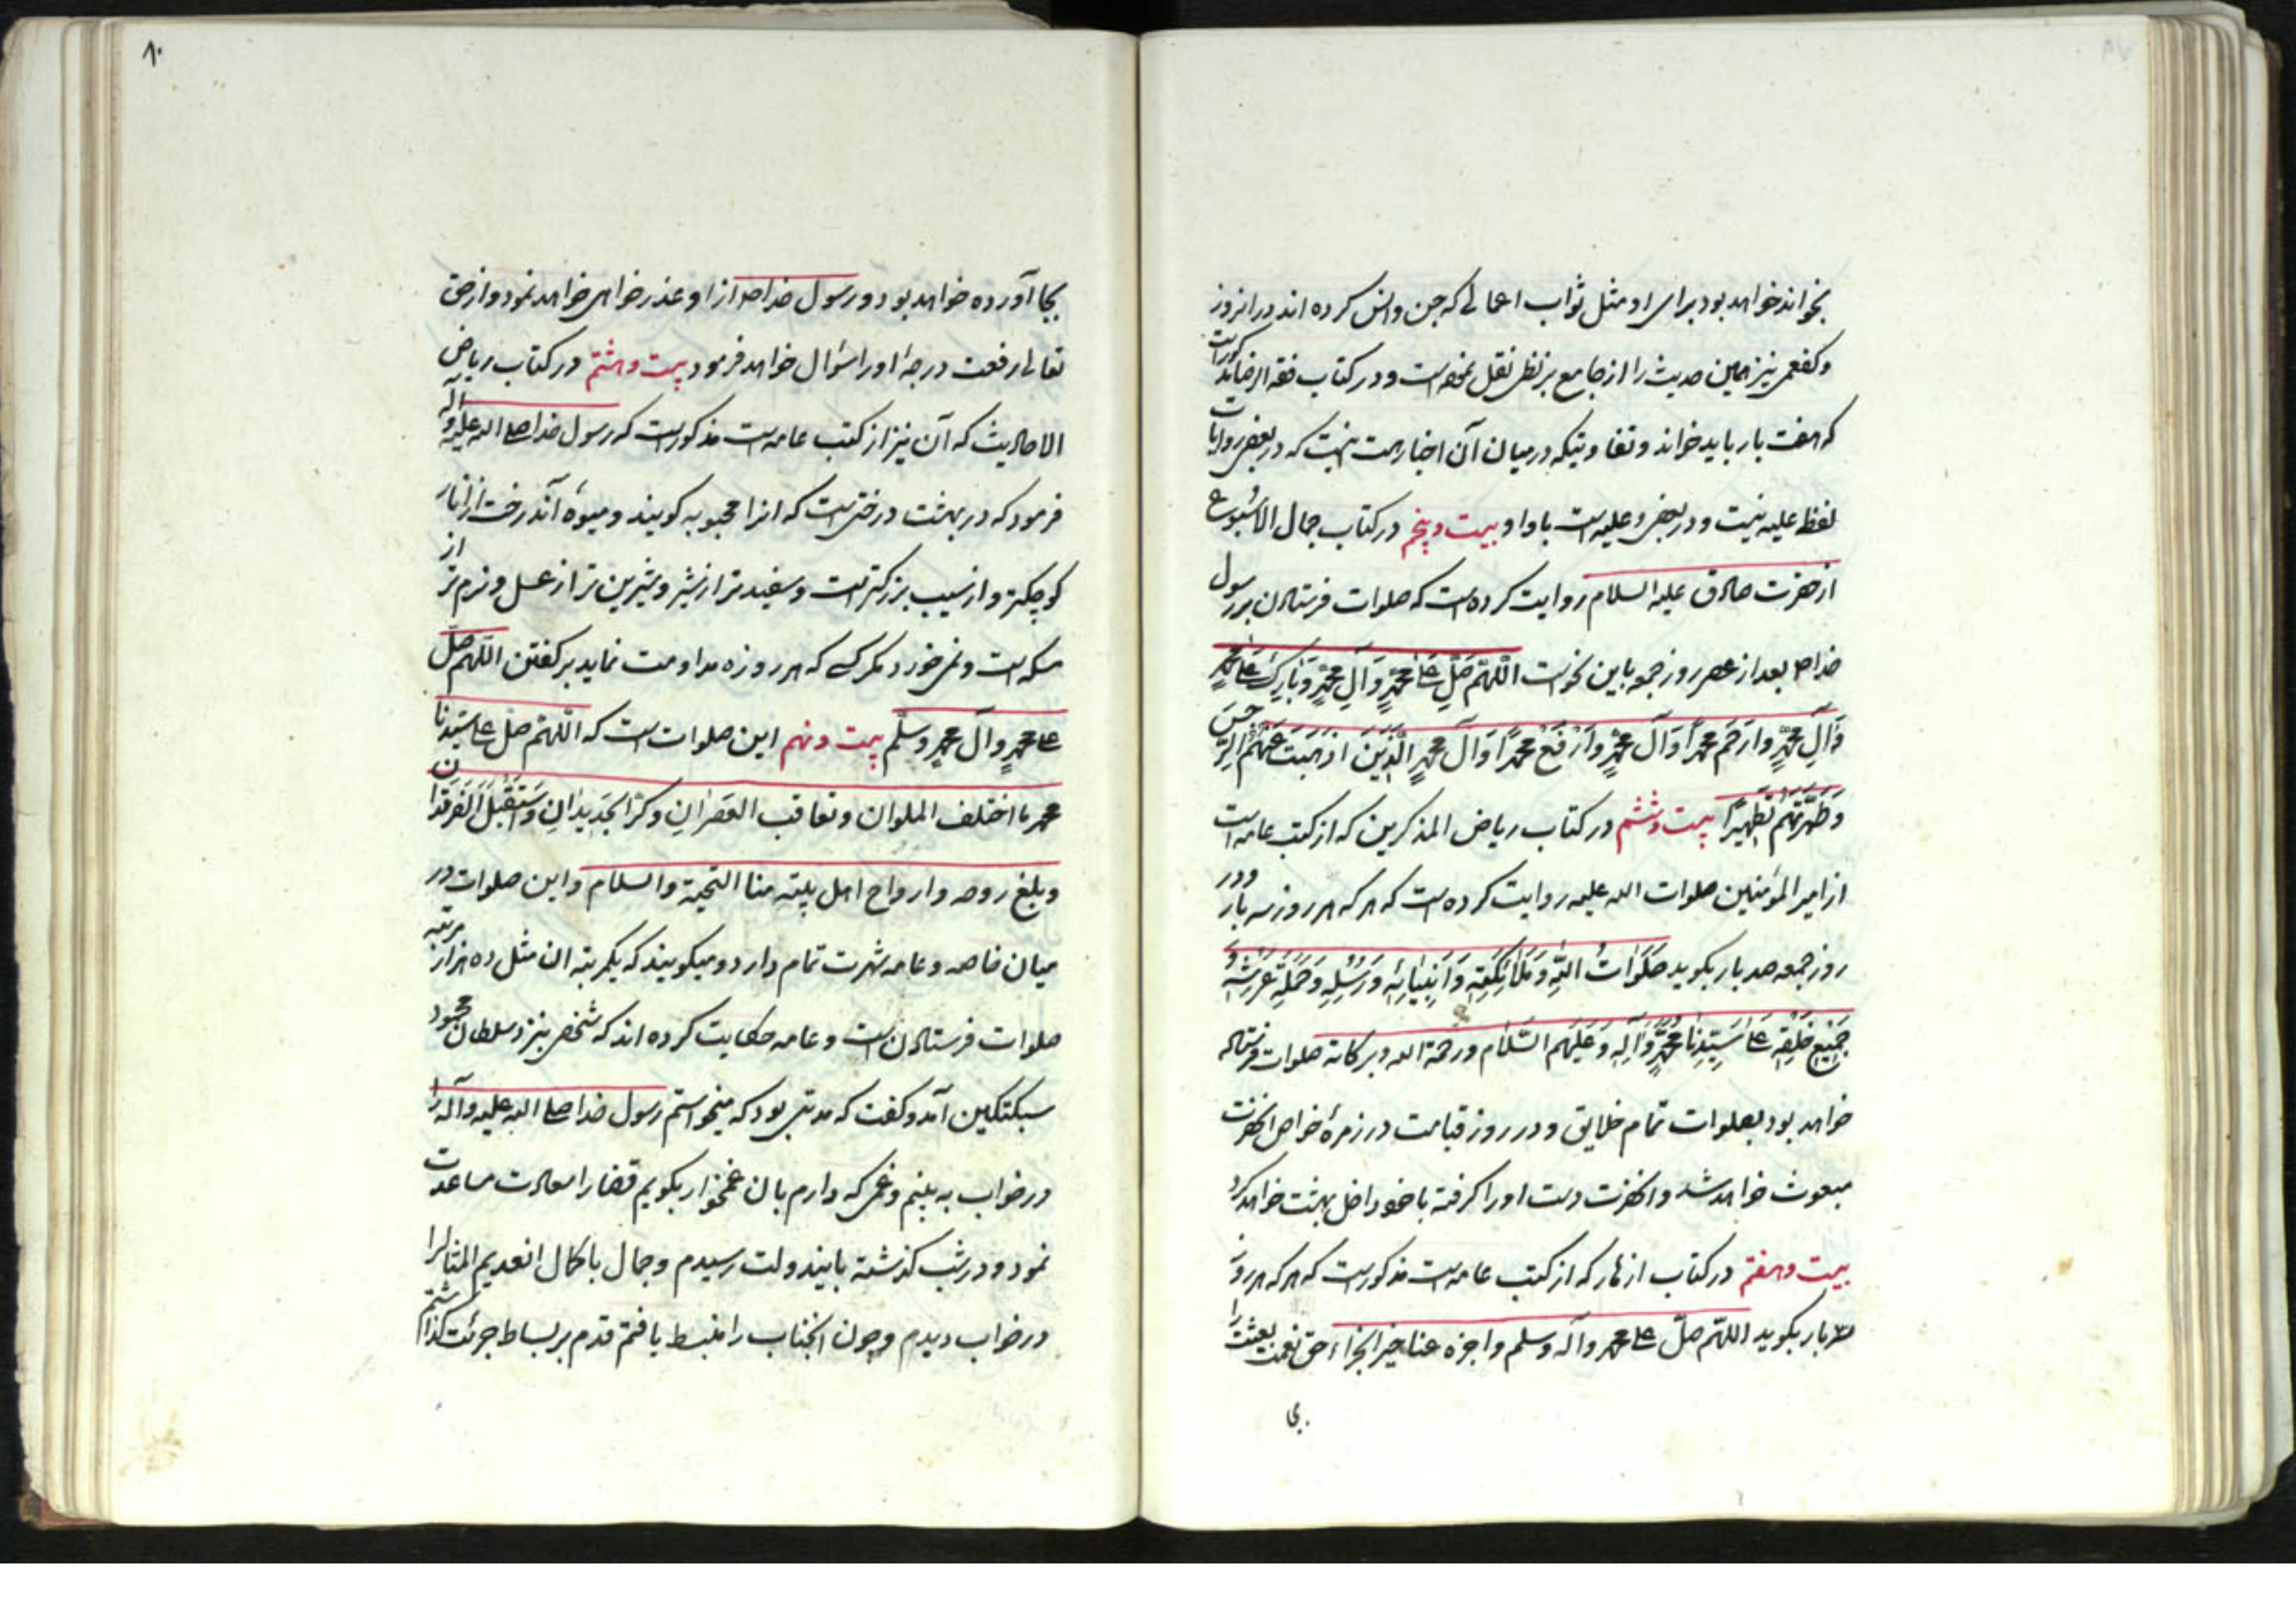 بخواند خواهد بود برای او مثل ثواب اعمالی که جن و انس کرده اند در انروز
و کفعمی نیز همین حدیث را از جامع بزنطی نقل نموده است و در کتاب فقه الرضا مذکور است
که هفت بار باید خواند و تفاوتیکه در میان آن اخبار هست اینست که در بعضی روایات
لفظ علیه نیست و در بعضی و علیه است با واو بیست و پنجم در کتاب جمال الاسبوع
از حضرت صادق علیه السلام روایت کرده است که صلوات فرستادن بر رسول
خدا ص بعد از عصر روز جمعه باین نحو است اللّهمّ صَلِّ عَلی محمّدٍ وَآلِ محمّدٍ وَبارِک عَلی محمّدٍ
وَآلِ محمّدٍ وارحَم محمّداً وَآلَ محمّدٍ وَارْفَعْ محمّداً وَآلَ محمّدٍ الَّذینَ اذهَبتَ عَنهُمُ الرِّجسَ
وَطَهَّرتَهُم تَطهیراً بیست و ششم در کتاب ریاض المذکرین که از کتب عامه است
از امیر المؤمنین صلوات الله علیه روایت کرده است که هر که هر روز سه بار و در
روز جمعه صد بار بکوید صَلَواتُ اللهِ وَمَلائِکَتِهِ وَاَنبِیائِهِ وَرُسُلِهِ وَحَمَلَةِ عَرشِهِ وَ
جَمیعِ خَلقِهِ عَلی سَیِّدِنا محمّدٍ وَآلِهِ وَعَلَیهِم السَّلام ورحمة الله وبرکاته صلوات فرستاده
خواهد بود بصلوات تمام خلایق و در روز قیامت در زمرهٔ خواص انحضرت
مبعوث خواهد شد و انحضرت دست او را کرفته با خود داخل بهشت خواهد کرد
بیست و هفتم در کتاب ازهار که از کتب عامه است مذکور است که هر که هر روز
سه بار بکوید اللّهمّ صلّ علی محمد وآله وسلم واجزه عنا خیر الجزاء حق نعمت بعثت را
بجا
۸۰
بجا آورده خواهد بود و رسول خدا ص از او عذر خواهی خواهد نمود و از حق
تعالی رفعت درجهٔ او را سئوال خواهد فرمود بیست و هشتم در کتاب ریاض
الاحادیث که آن نیز از کتب عامه است مذکور است که رسول خدا صلی الله علیه وآله
فرمود که در بهشت درختی است که انرا محبوبه کویند و میوهٔ آندرخت از انار
کوچکتر و از سیب بزرکتر است و سفیدتر از شیر و شیرین تر از عسل و نرم تر از
مسکه است و نمی خورد مکر کسی که هر روزه مداومت نماید بر کفتن اللّهم صلّ
علی محمدٍ وآل محمدٍ وسلّم بیست و نهم این صلوات است که اللّهمّ صلّ علی سیّدنا
محمد ما اختلف الملوان وتعاقب العَصرانِ وکرّ الجَدیدانِ وَاستَقبَلَ الفَرقَدان
وبلغ روحه وارواح اهل بیته منا التحیة والسلام و این صلوات در
میان خاصه و عامه شهرت تمام دارد و میکویند که یکمرتبه ان مثل ده هزار مرتبه
صلوات فرستادن است و عامه حکایت کرده اند که شخصی بنزد سلطان محمود
سبکتکین آمد و کفت که مدتی بود که میخواستم رسول خدا صلی الله علیه وآله را
در خواب به بینم و غمی که دارم بان غمخوار بکویم قضا را سعادت مساعدت
نمود و در شب کذشته بایندولت رسیدم و جمال باکمال انعدیم المثال را
در خواب دیدم و چون انجناب را منبسط یافتم قدم بر بساط جرئت کذاشتم